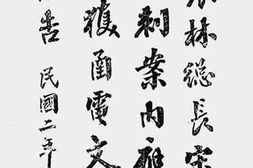 農林總長宋
刺案內應
獲函電文
告 民國二年